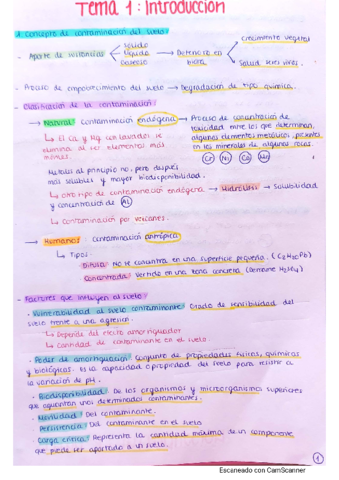 Tema 1: Introducción
A. concepto de contaminación del suelo
- Aporte de sustancias
sólido
líquido
gaseoso
Deterioro en biota
crecimiento vegetal
Salud seres vivos.
- Proceso de empobrecimiento del suelo → Degradación de tipo química.
- Clasificación de la contaminación:
→ Natural: Contaminación endógena → Proceso de concentración de
toxicidad entre los que determinan
algunos elementos metálicos, presentes
en los minerales de algunas rocas.
↳ El Ca y Mg son lavados, se
elimina al ser elementos más
móviles.
Cr Ni Cu Mn
Metales al principio no, pero después
más solubles y mayor biodisponibilidad.
↳ otro tipo de contaminación endógena → Hidrólisis → Solubilidad
y concentración de Al
↳ Contaminación por volcanes.
→ Humanas: Contaminación antrópica
↳ Tipos:
Difusa: No se concentra en una superficie pequeña.
Concentrada: Vertido en una zona concreta
- Factores que influyen al suelo:
- Vulnerabilidad al suelo contaminante: Grado de sensibilidad del
suelo frente a una agresión.
↳ Depende del efecto amortiguador
↳ Cantidad de contaminante en el suelo
- Poder de amortiguación: Conjunto de propiedades físicas, químicas
y biológicas. Es la capacidad o propiedad del suelo para resistir a
la variación de pH.
- Biodisponibilidad: De los organismos y microorganismos superiores
que aguantan unos determinados contaminantes.
- Movilidad: Del contaminante.
- Persistencia: Del contaminante en el suelo
- Carga crítica: Representa la cantidad máxima de un componente
que puede ser aportado a un suelo.
1
Escaneado con CamScanner